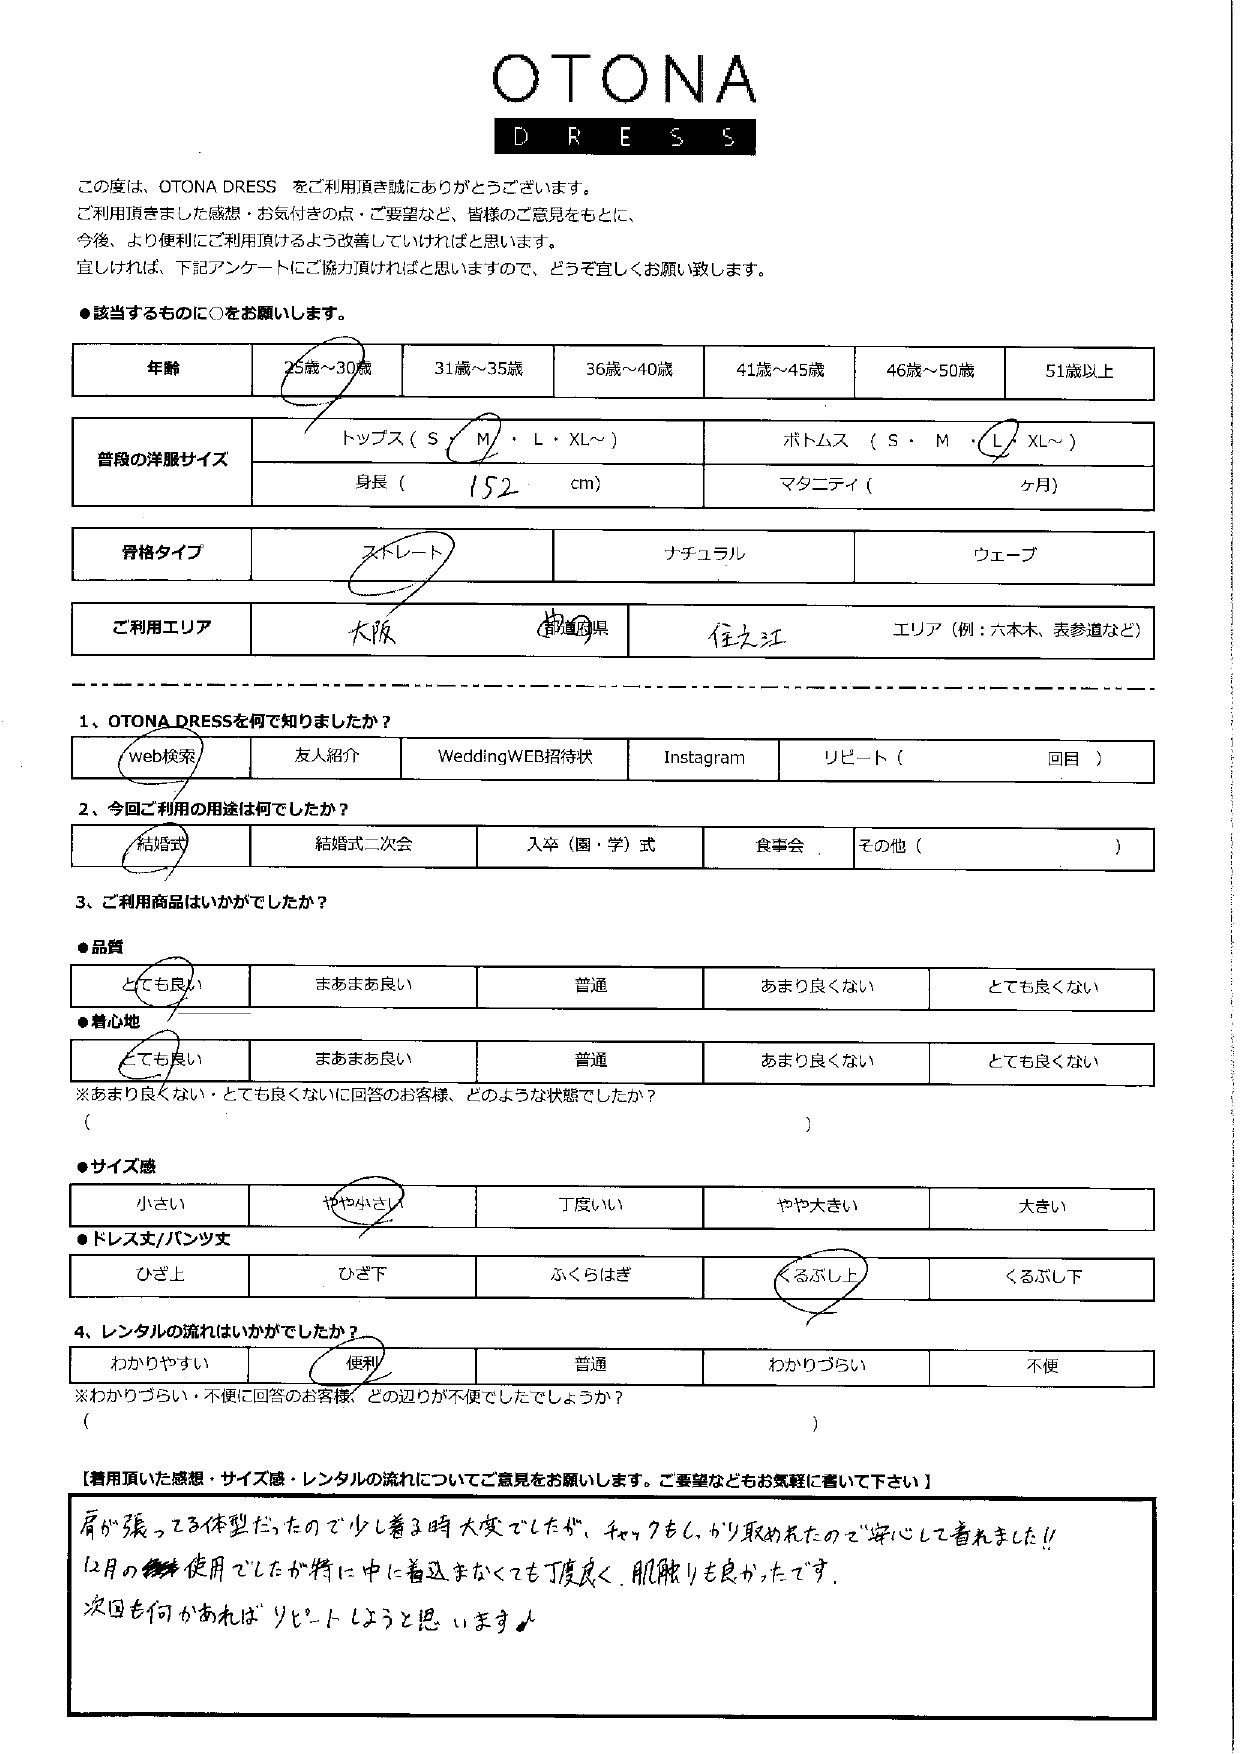 OTONA
DRESS
この度は、OTONA DRESS　をご利用頂き誠にありがとうございます。
ご利用頂きました感想・お気付きの点・ご要望など、皆様のご意見をもとに、
今後、より便利にご利用頂けるよう改善していければと思います。
宜しければ、下記アンケートにご協力頂ければと思いますので、どうぞ宜しくお願い致します。
●該当するものに○をお願いします。
年齢 25歳～30歳 31歳～35歳 36歳～40歳 41歳～45歳 46歳～50歳 51歳以上
普段の洋服サイズ トップス ( S ・ M ・ L ・ XL～ ) ボトムス ( S ・ M ・ L ・ XL～ )
身長 ( 152 cm) マタニティ ( ヶ月)
骨格タイプ ストレート ナチュラル ウェーブ
ご利用エリア 大阪 都道府県 住之江 エリア（例：六本木、表参道など）
1、OTONA DRESSを何で知りましたか？
web検索 友人紹介 WeddingWEB招待状 Instagram リピート（ 回目 ）
2、今回ご利用の用途は何でしたか？
結婚式 結婚式二次会 入卒（園・学）式 食事会 その他（ ）
3、ご利用商品はいかがでしたか？
●品質
とても良い まあまあ良い 普通 あまり良くない とても良くない
●着心地
とても良い まあまあ良い 普通 あまり良くない とても良くない
※あまり良くない・とても良くないに回答のお客様、どのような状態でしたか？
( )
●サイズ感
小さい やや小さい 丁度いい やや大きい 大きい
●ドレス丈/パンツ丈
ひざ上 ひざ下 ふくらはぎ くるぶし上 くるぶし下
4、レンタルの流れはいかがでしたか？
わかりやすい 便利 普通 わかりづらい 不便
※わかりづらい・不便に回答のお客様、どの辺りが不便でしたでしょうか？
( )
【着用頂いた感想・サイズ感・レンタルの流れについてご意見をお願いします。ご要望などもお気軽に書いて下さい】
肩が張ってる体型だったので少し着る時大変でしたが、チャックもしっかり収められたので安心して着れました!!
12月の使用でしたが特に中に着込まなくても丁度良く、肌触りも良かったです。
次回も何かあればリピートしようと思います♪